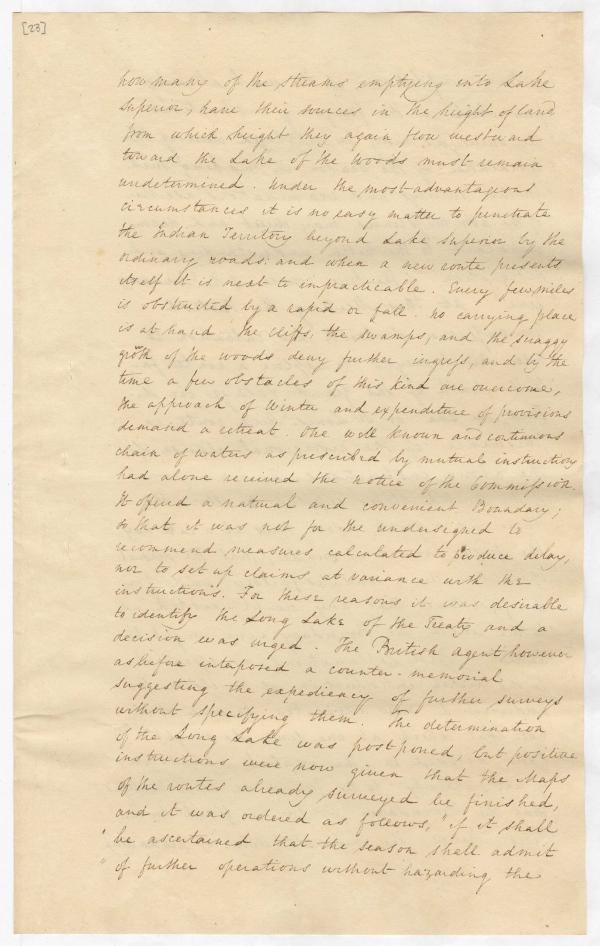 [23]
how many of the streams emptying into Lake
Superior, have their sources in the height of land
from which height they again flow westward
toward the Lake of the Woods must remain
undetermined. Under the most advantageous
circumstances it is no easy matter to penetrate
the Indian Territory beyond Lake Superior by the
ordinary roads: and when a new route presents
itself it is next to impracticable. Every few miles
is obstructed by a rapid or fall. no carrying place
is at hand. The cliffs, the swamps, and the scraggy
groth of the woods deny further ingress, and by the
time a few obstacles of this kind are overcome,
the approach of Winter and expenditure of provisions
demand a retreat. One well known and continuous
chain of waters as prescribed by mutual instructions
had alone received the notice of the Commission.
It offered a natural and convenient Boundary;
so that it was not for the undersigned to
recommend measures calculated to produce delay,
nor to set up claims at variance with the
instructions. For these reasons it was desirable
to identify the Long Lake of the Treaty and a
decision was urged. The British Agent however
as before interposed a counter-memorial
suggesting the expediency of further surveys
without specifying them. The determination
of the Long Lake was postponed, but positive
instructions were now given that the Maps
of the routes already surveyed be finished,
and it was ordered as follows, "if it shall
" be ascertained that the season shall admit
" of further operations without hazarding the